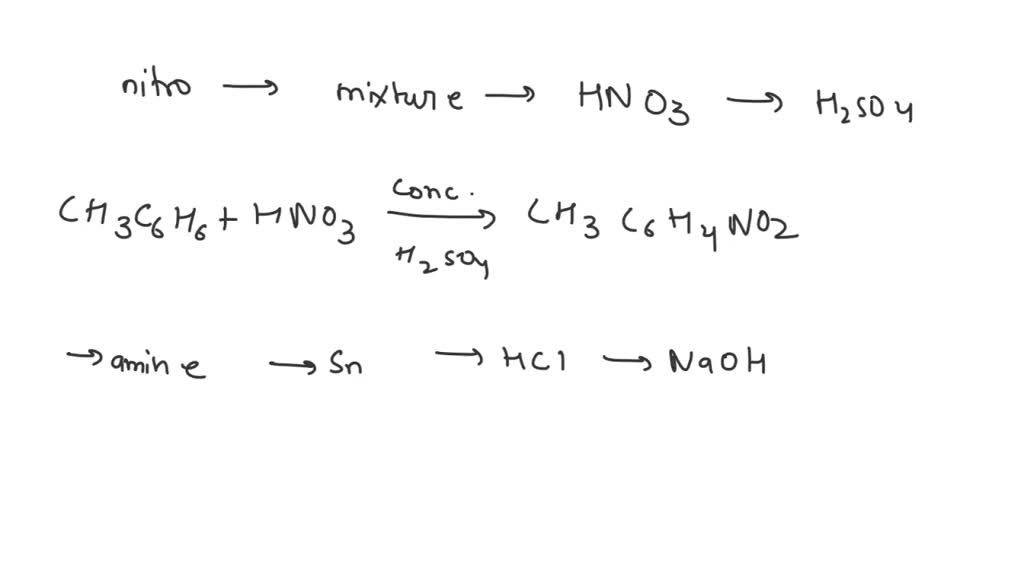 nitro → mixture → HNO3 → H2SO4
CH3C6H6 + HNO3 conc. → H2SO4 CH3 C6H4NO2
→ amine → Sn → HCl → NaOH